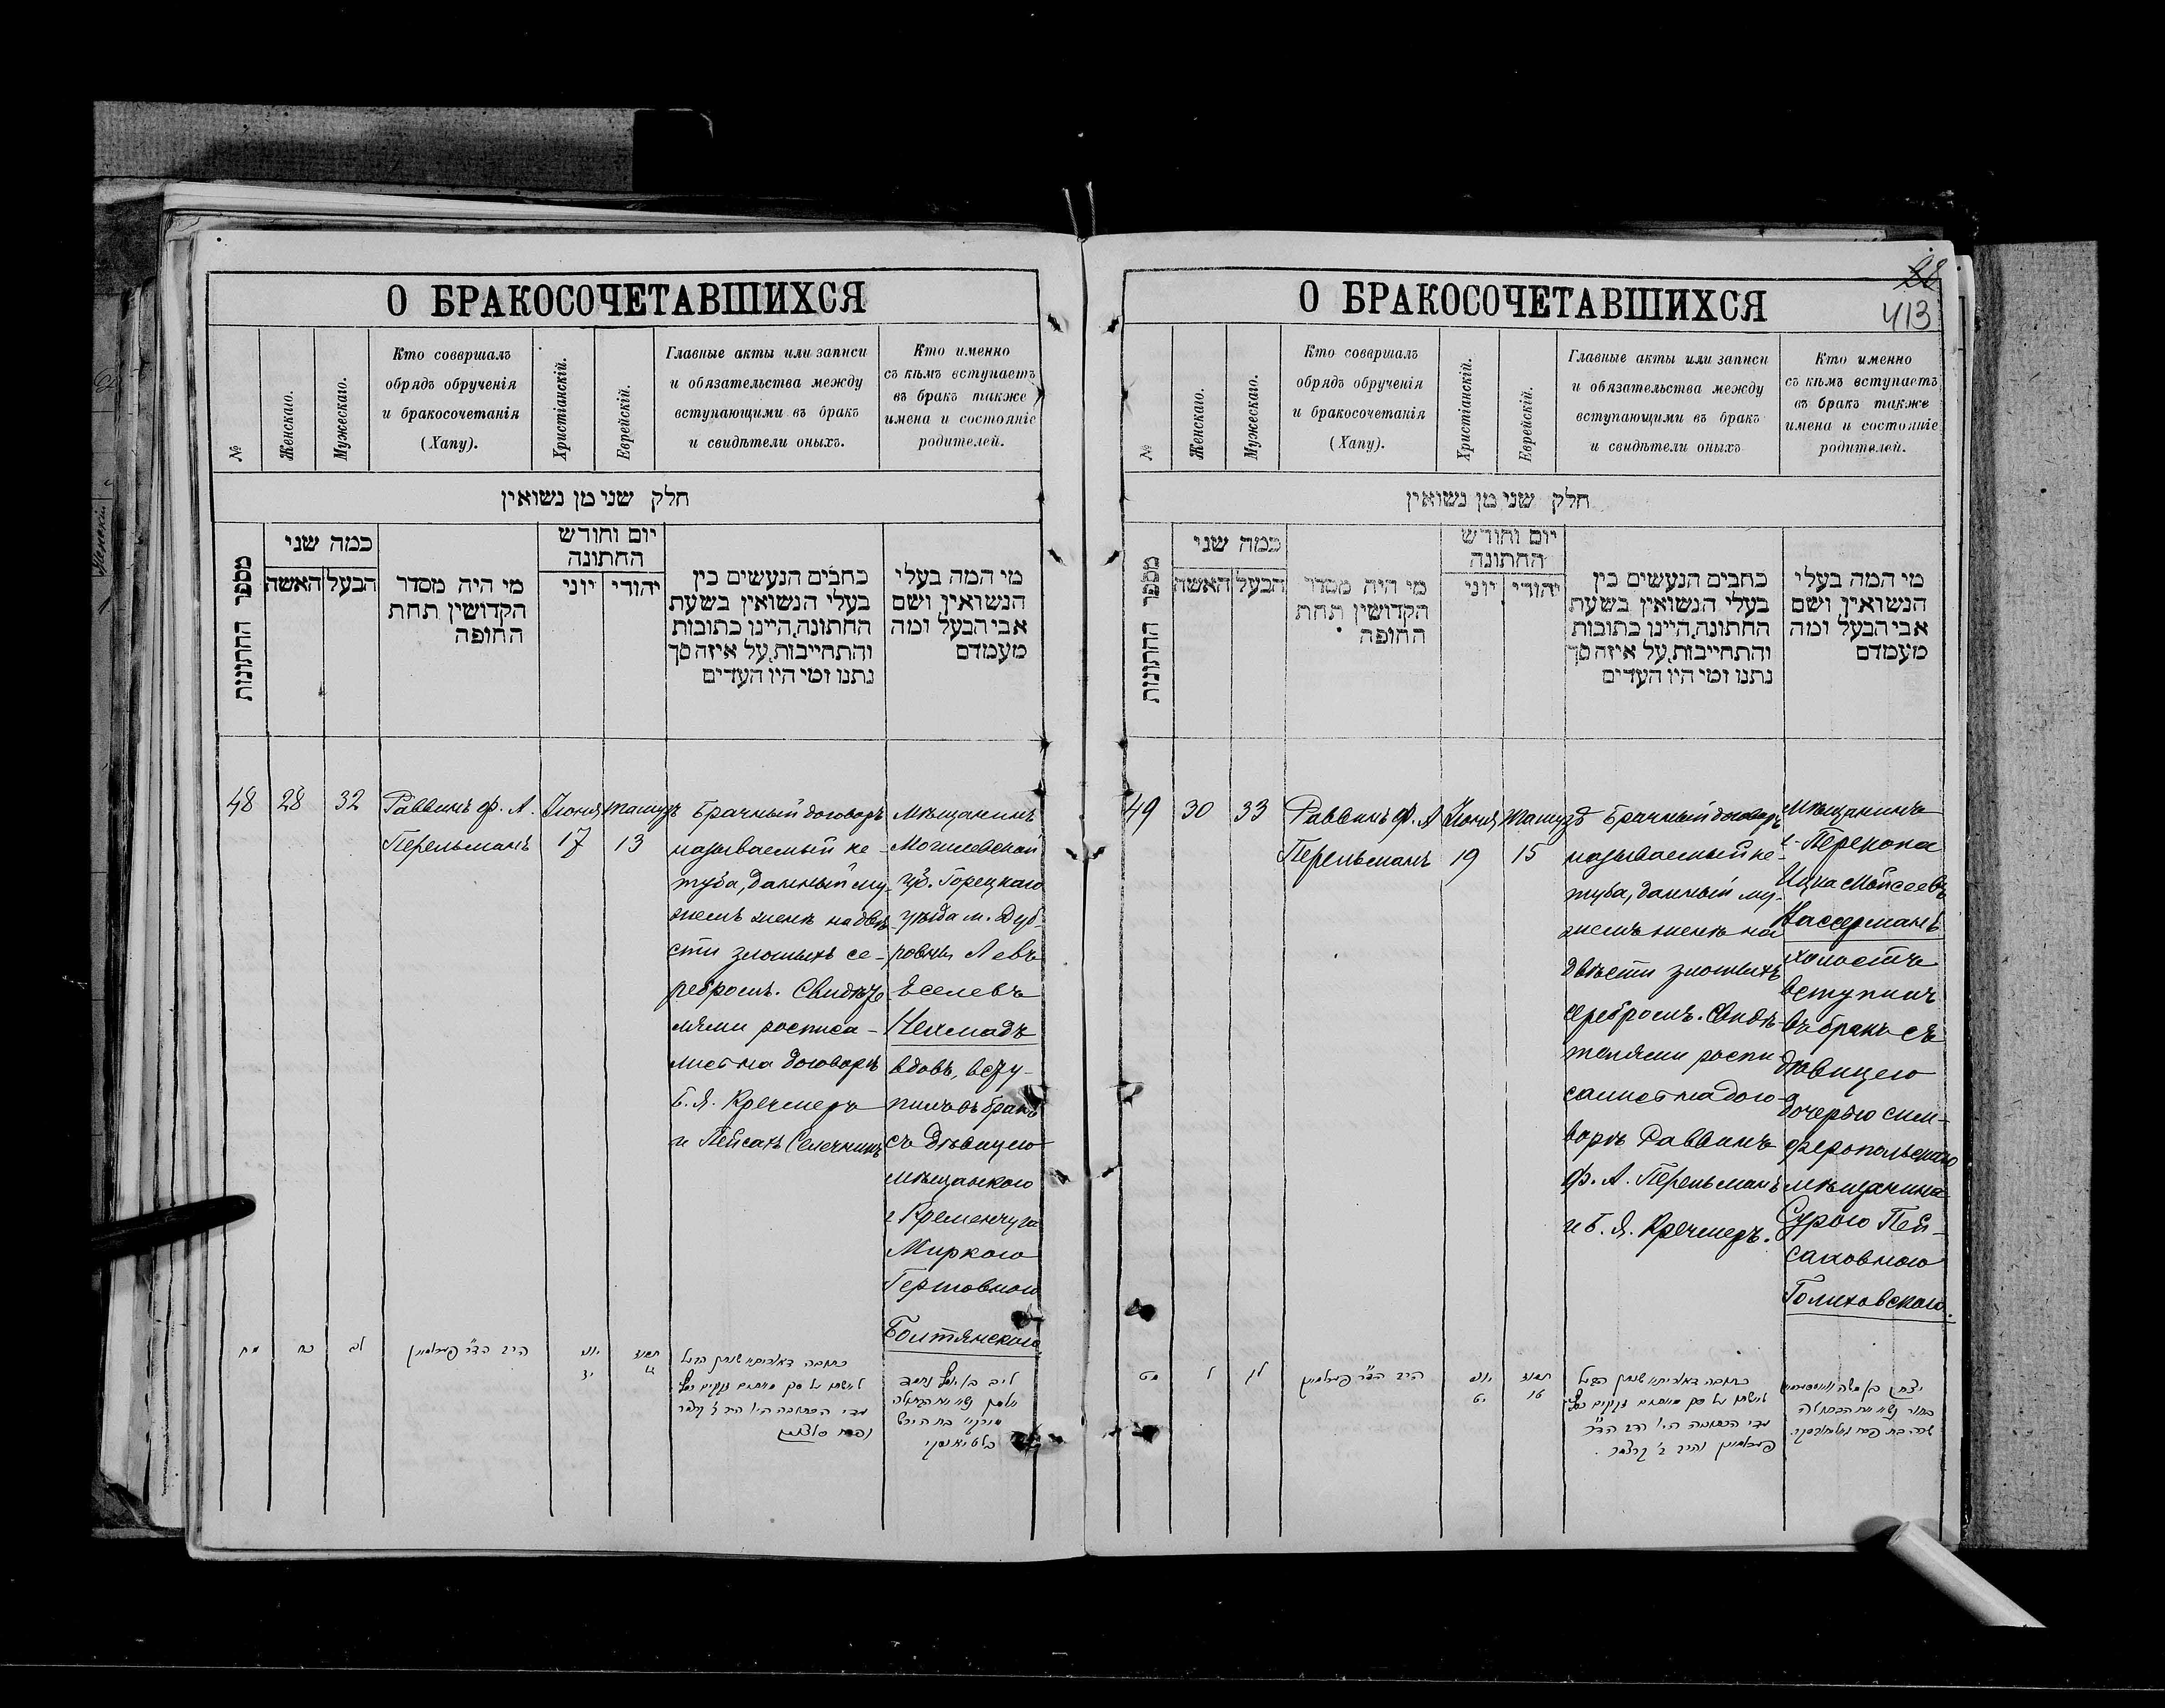 О БРАКОСОЧЕТАВШИХСЯ
№
Женскаго.
Мужескаго.
Кто совершалъ
обрядъ обрученія
и бракосочетанія
(Хапу).
Христіанскій.
Еврейскій.
Главные акты или записи
и обязательства между
вступающими въ бракъ
и свидѣтели оныхъ.
Кто именно
съ кѣмъ вступаетъ
въ бракъ также
имена и состояніе
родителей.
חלק שני מן נשואין
מספר החתונות
כמה שני
האשה
הבעל
מי היה מסדר
הקדושין תחת
החופה
יום וחודש
החתונה
יוני
יהודי
כתבים הנעשים בין
בעלי הנשואין בשעת
החתונה, היינו כתובות
והתחייבות, על איזה סך
נתנו ומי היו העדים
מי המה בעלי
הנשואין ושם
אבי הבעל ומה
מעמדם
48
28
32
Раввинъ Ф. А.
Перельманъ
Іюня
17
Тамузъ
13
Брачный договоръ
называемый ке-
туба, данный му-
жемъ женѣ на двѣ-
сти злотыхъ се-
ребромъ. Свидѣте-
лями росписа-
лись на договорѣ
Б. Я. Кречмеръ
и Пейсахъ
Мѣщанинъ
Могилевской
губ. Горецкаго
уѣзда м. Дуб-
ровны Левъ
Еселевъ
Нехмадъ
вдовъ, всту-
пилъ въ бракъ
съ дѣвицею
мѣщанкою
г. Кременчуга
Миркою
Гершовною
Болтянскою
מח
כח
לב
הרב הד״ר פערלמאן
יוני
יז
תמוז
יג
О БРАКОСОЧЕТАВШИХСЯ
28
413
№
Женскаго.
Мужескаго.
Кто совершалъ
обрядъ обрученія
и бракосочетанія
(Хапу).
Христіанскій.
Еврейскій.
Главные акты или записи
и обязательства между
вступающими въ бракъ
и свидѣтели оныхъ
Кто именно
съ кѣмъ вступаетъ
въ бракъ также
имена и состояніе
родителей.
חלק שני מן נשואין
מספר החתונות
כמה שני
האשה
הבעל
מי היה מסדר
הקדושין תחת
החופה
יום וחודש
החתונה
יוני
יהודי
כתבים הנעשים בין
בעלי הנשואין בשעת
החתונה, היינו כתובות
והתחייבות, על איזה סך
נתנו ומי היו העדים
מי המה בעלי
הנשואין ושם
אבי הבעל ומה
מעמדם
49
30
33
Раввинъ Ф. А
Перельманъ
Іюня
19
Тамузъ
15
Брачный договоръ
называемый ке-
туба, данный му-
жемъ женѣ на
двѣсти злотыхъ
серебромъ. Свидѣ-
телями роспи-
сались на дого-
ворѣ Раввинъ
Ф. А. Перельманъ
и Б. Я. Кречмеръ.
Мѣщанинъ
г. Перекопа
Ицка Мойсеевъ
Вассерманъ
холостъ
вступилъ
въ бракъ съ
дѣвицею
дочерью сим-
феропольскаго
мѣщанина
Сурою Пей-
саховною
Голиховскою.
מט
ל
לג
הרב הד״ר פערלמאן
יוני
יט
תמוז
טו